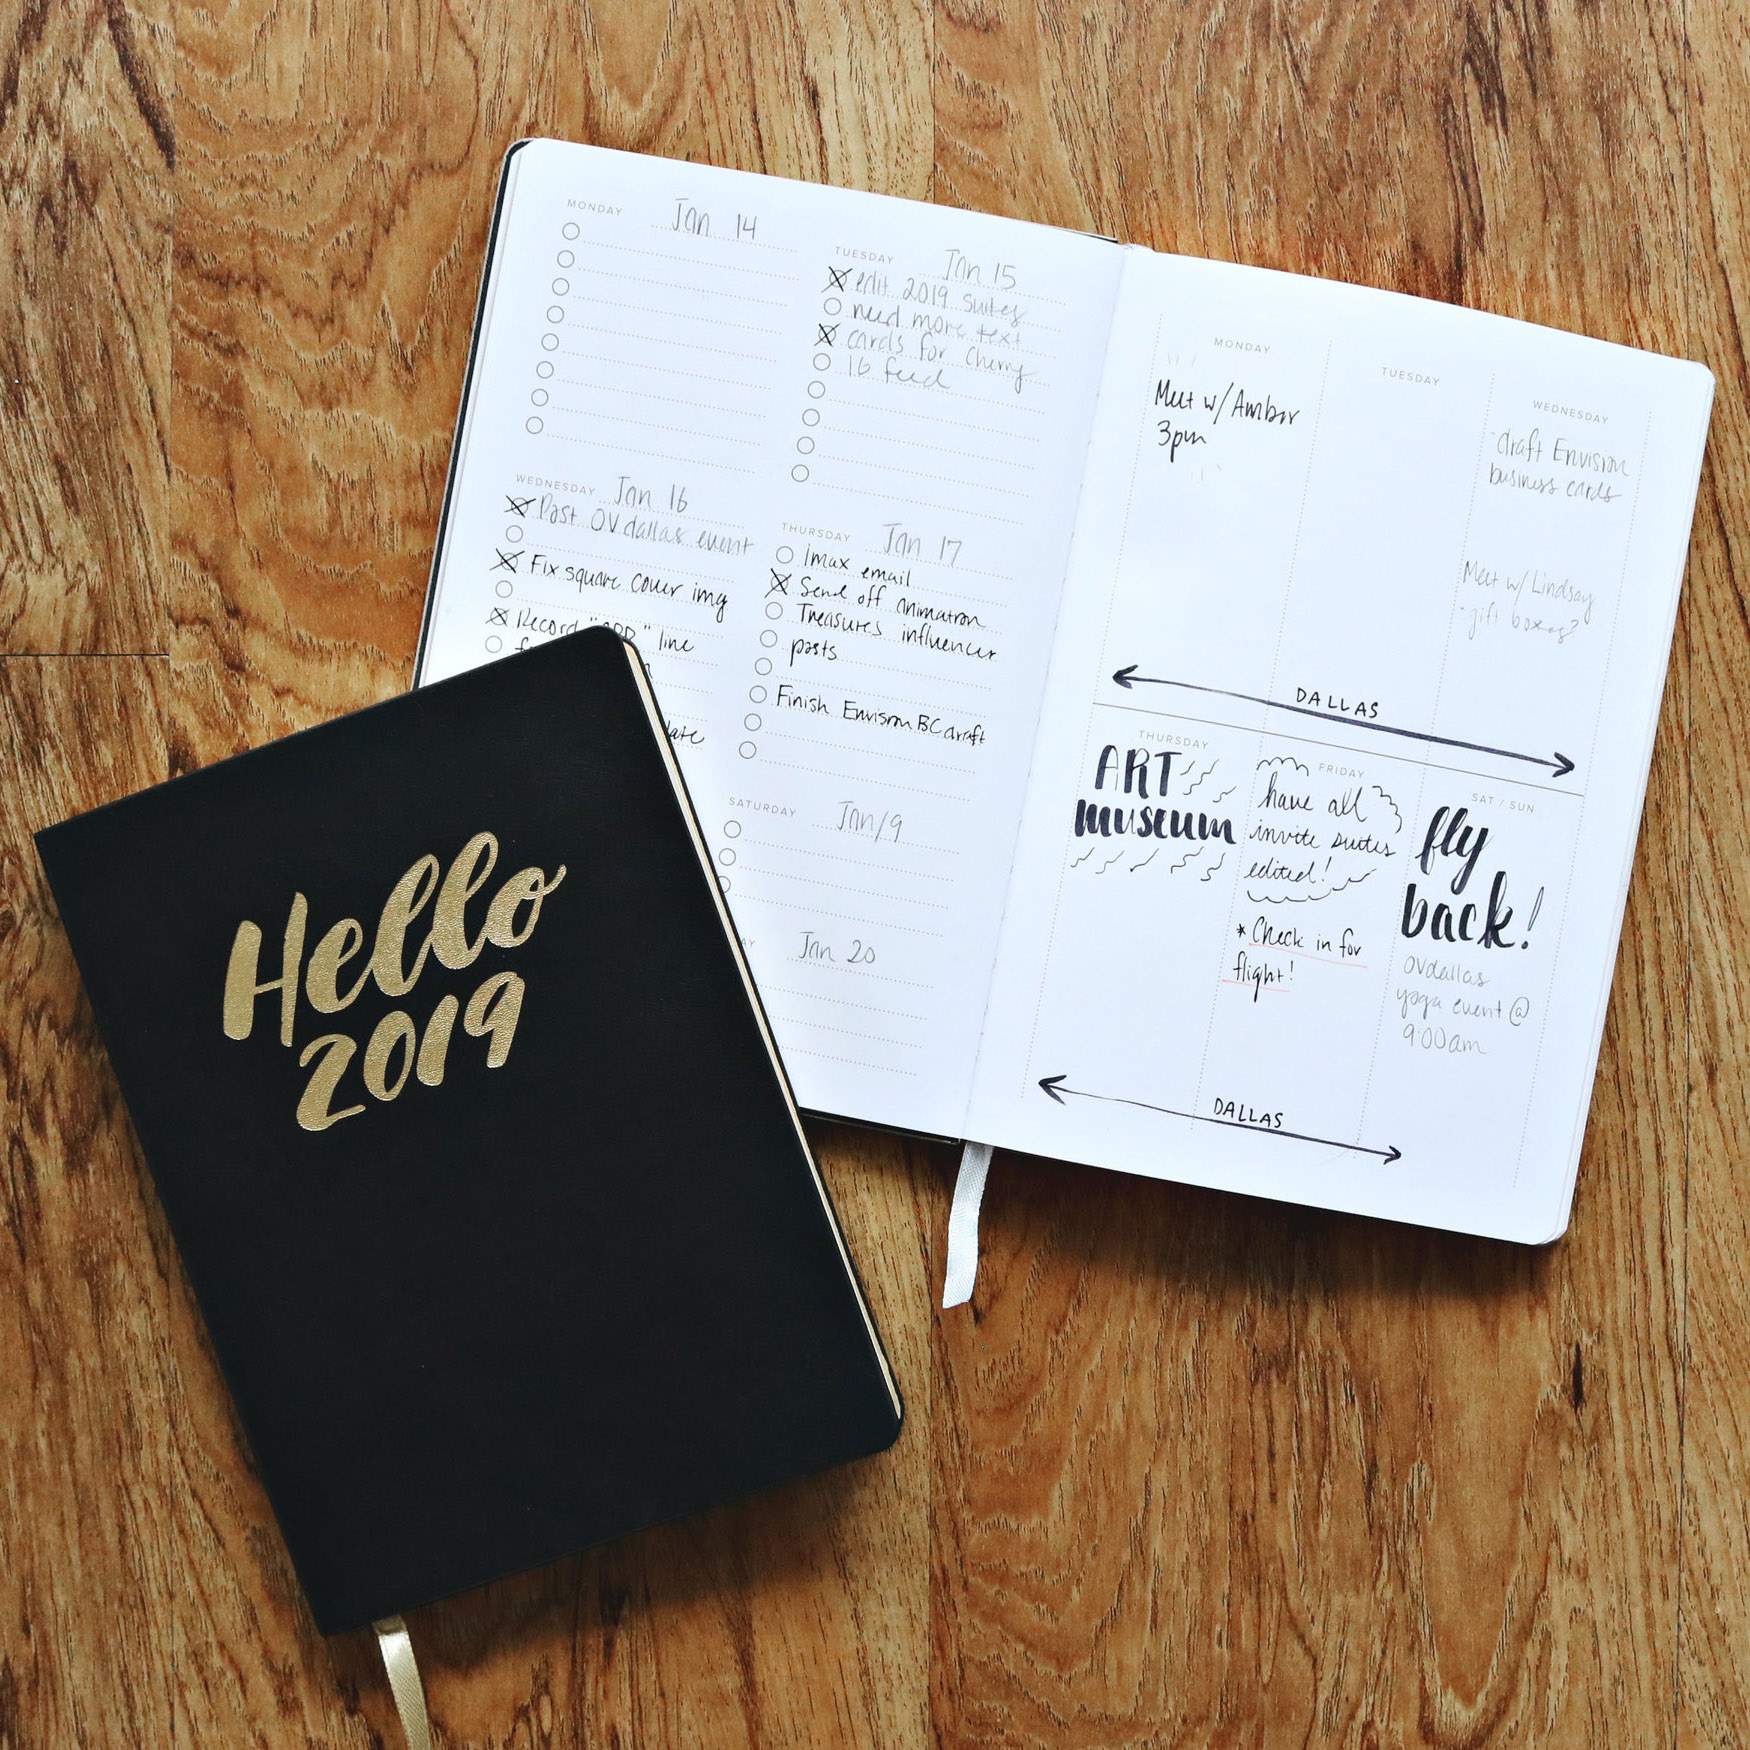 MONDAY Jan 14
TUESDAY Jan 15
edit 2019 suites
need more text
cards for cherry
16 feed
WEDNESDAY Jan 16
Post OVdallas event
Fix square cover img
Record line
THURSDAY Jan 17
imax email
Send off animatron
Treasures influencer
posts
Finish Envision BC draft
SATURDAY Jan 19
Jan 20
MONDAY
Meet w/ Amber
3pm
TUESDAY
WEDNESDAY
-draft Envision
business cards
Meet w/ Lindsay
-gift boxes?
DALLAS
THURSDAY
ART
museum
FRIDAY
have all
invite suites
edited!
* Check in for
flight!
SAT / SUN
fly
back!
OVdallas
yoga event @
9:00am
DALLAS
Hello
2019